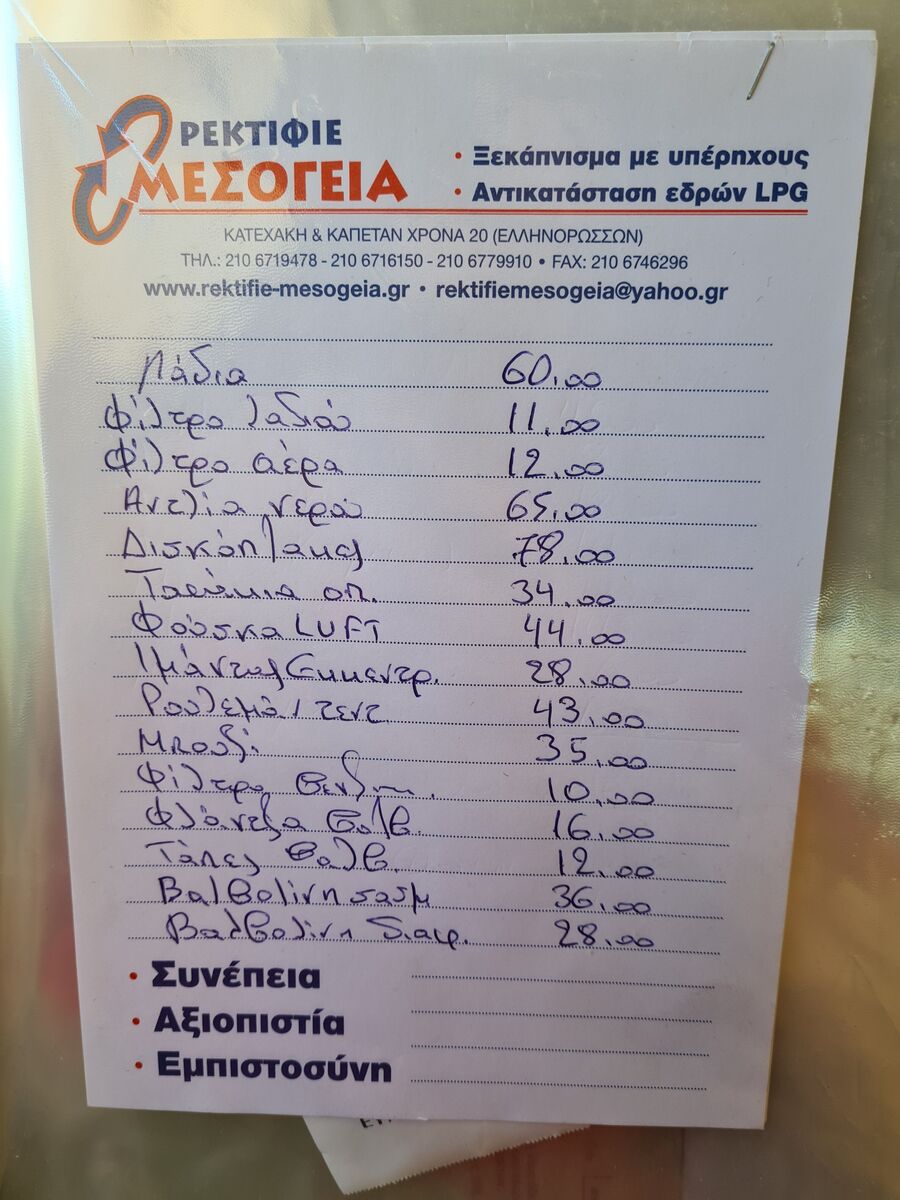 ΡΕΚΤΙΦΙΕ
ΜΕΣΟΓΕΙΑ
• Ξεκάπνισμα με υπέρηχους
• Αντικατάσταση εδρών LPG
ΚΑΤΕΧΑΚΗ & ΚΑΠΕΤΑΝ ΧΡΟΝΑ 20 (ΕΛΛΗΝΟΡΩΣΣΩΝ)
ΤΗΛ.: 210 6719478 - 210 6716150 - 210 6779910 • FAX: 210 6746296
www.rektifie-mesogeia.gr • rektifiemesogeia@yahoo.gr
Λάδια 60.00
Φίλτρο λαδιού 11.00
Φίλτρο αέρα 12.00
Αντλία νερού 65.00
Δισκόπλακες 78.00
Τακάκια οπ. 34.00
Φούσκα LUFT 44.00
Ιμάντας εκκεντρ. 28.00
Ρουλεμάν τεντ 43.00
Μπουζί 35.00
Φίλτρο βενζίνης. 10.00
Φλάντζα βαλβ. 16.00
Τάπες βαλβ. 12.00
Βαλβολίνη σασμ 36.00
Βαλβολίνη διαφ. 28.00
• Συνέπεια
• Αξιοπιστία
• Εμπιστοσύνη